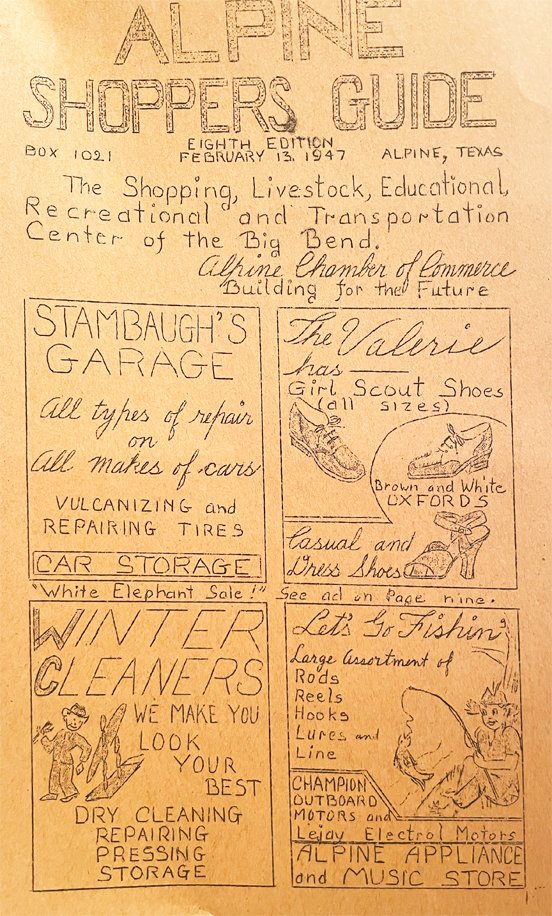 ALPINE
SHOPPERS GUIDE
EIGHTH EDITION
BOX 1021 FEBRUARY 13, 1947 ALPINE, TEXAS
The Shopping, Livestock, Educational,
Recreational and Transportation
Center of the Big Bend.
Alpine Chamber of Commerce
Building for the Future
STAMBAUGH'S
GARAGE
All types of repair
on
All makes of cars
VULCANIZING and
REPAIRING TIRES
CAR STORAGE
The Valerie
has
Girl Scout Shoes
(all sizes)
Brown and White
OXFORDS
Casual and
Dress Shoes
"White Elephant Sale!" See ad on Page nine.
WINTER
CLEANERS
WE MAKE YOU
LOOK
YOUR
BEST
DRY CLEANING
REPAIRING
PRESSING
STORAGE
Let's Go Fishin'
Large Assortment of
Rods
Reels
Hooks
Lures and
Line
CHAMPION
OUTBOARD
MOTORS and
Lejay Electrol Motors
ALPINE APPLIANCE
and MUSIC STORE